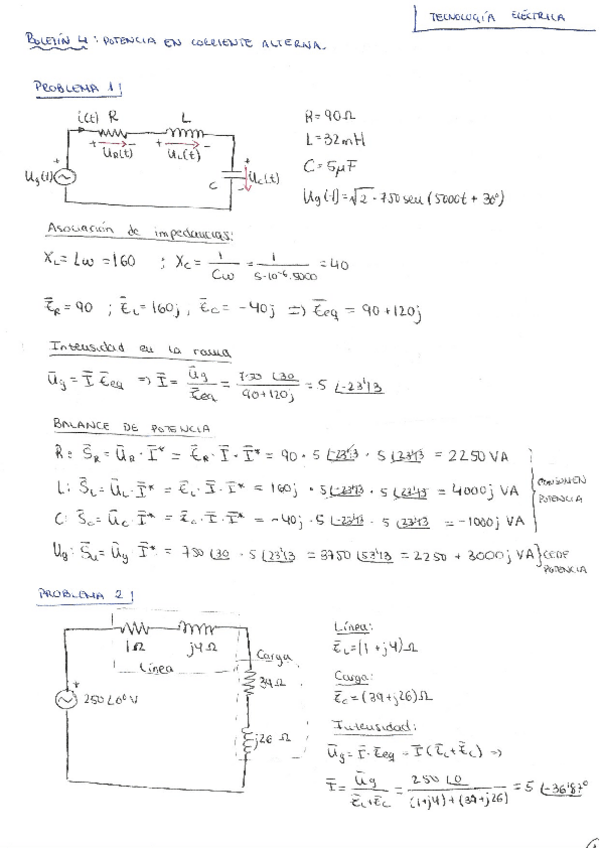 TECNOLOGÍA ELÉCTRICA
BOLETÍN 4: POTENCIA EN CORRIENTE ALTERNA.
PROBLEMA 1|
i(t) R L
+ - + -
U_R(t) U_L(t)
U_g(t) C U_C(t)
R=90Ω
L=32mH
C=5μF
U_g(t)=√2·750sen(5000t+30°)
Asociación de impedancias:
X_L=Lω=160 ; X_C=1/Cω=1/5·10^-6·5000=40
Z̄_R=90 ; Z̄_L=160j, Z̄_C=-40j => Z̄_eq=90+120j
Intensidad en la rama
Ū_g=Ī Z̄_eq => Ī=Ū_g/Z̄_eq=750∠30/90+120j=5∠-23'13
BALANCE DE POTENCIA
R: S̄_R=Ū_R·Ī*=Z̄_R·Ī·Ī*=90·5∠-23'13·5∠23'13=2250VA
L: S̄_L=Ū_L·Ī*=Z̄_L·Ī·Ī*=160j·5∠-23'13·5∠23'13=4000j VA
C: S̄_C=Ū_C·Ī*=Z̄_C·Ī·Ī*=-40j·5∠-23'13·5∠23'13=-1000j VA
CONSUMEN POTENCIA
U_g: S̄_u=Ū_g·Ī*=750∠30·5∠23'13=3750∠53'13=2250+3000j VA} CEDE POTENCIA
PROBLEMA 2|
1Ω j4Ω
Línea
Carga
39Ω
250∠0°V
j26Ω
Línea:
Z̄_L=(1+j4)Ω
Carga:
Z̄_C=(39+j26)Ω
Intensidad:
Ū_g=Ī·Z̄_eq=Ī(Z̄_L+Z̄_C) =>
Ī=Ū_g/Z̄_L+Z̄_C=250∠0/(1+j4)+(39+j26)=5∠-36'87°